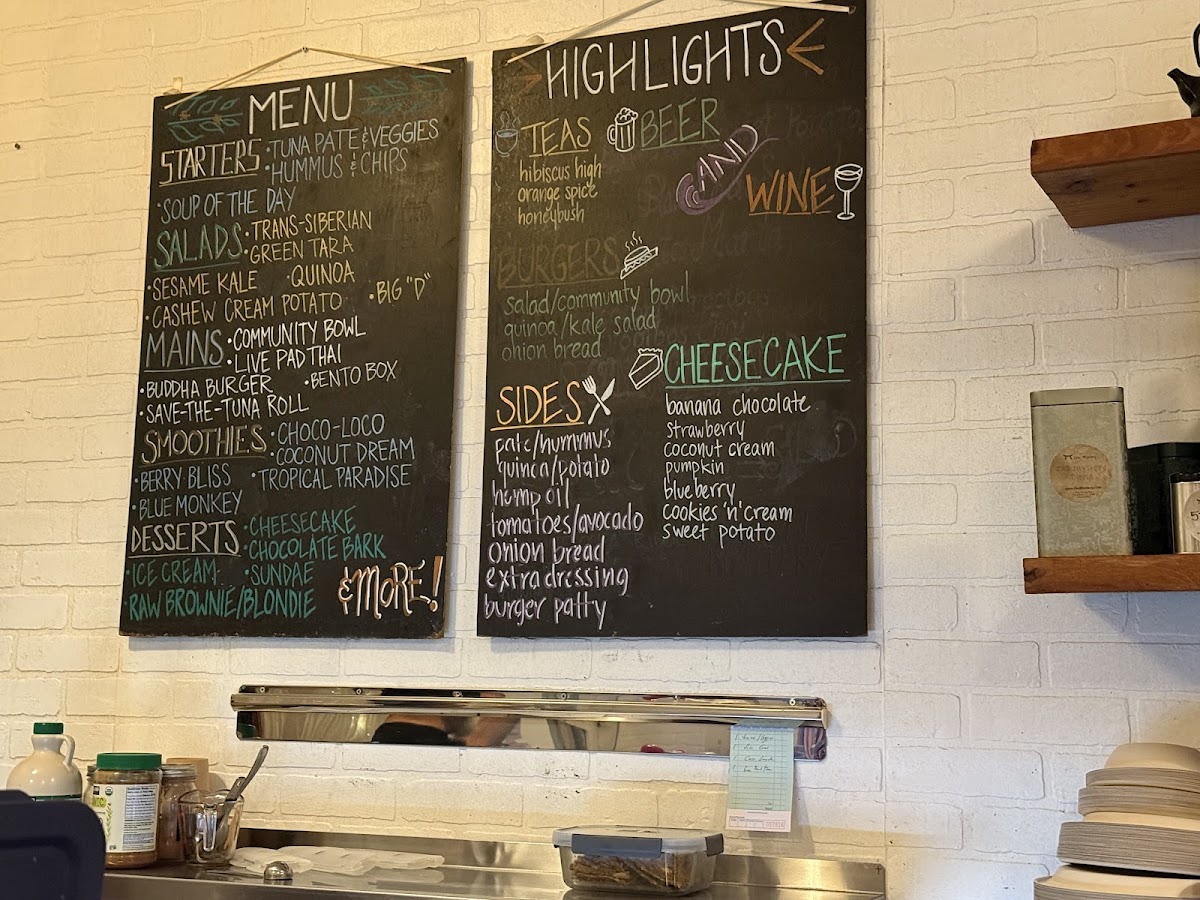 MENU
STARTERS
•TUNA PATE & VEGGIES
•HUMMUS & CHIPS
•SOUP OF THE DAY
SALADS
•TRANS-SIBERIAN
•GREEN TARA
•SESAME KALE •QUINOA
•CASHEW CREAM POTATO •BIG "D"
MAINS
•COMMUNITY BOWL
•LIVE PAD THAI
•BUDDHA BURGER •BENTO BOX
•SAVE-THE-TUNA ROLL
SMOOTHIES
•CHOCO-LOCO
•COCONUT DREAM
•BERRY BLISS •TROPICAL PARADISE
•BLUE MONKEY
DESSERTS
•CHEESECAKE
•CHOCOLATE BARK
•ICE CREAM •SUNDAE
•RAW BROWNIE/BLONDIE
& MORE!
HIGHLIGHTS
TEAS
hibiscus high
orange spice
honeybush
BEER
AND
WINE
BURGERS
salad/community bowl
quinoa/kale salad
onion bread
SIDES
pate/hummus
quinoa/potato
hemp oil
tomatoes/avocado
onion bread
extra dressing
burger patty
CHEESECAKE
banana chocolate
strawberry
coconut cream
pumpkin
blueberry
cookies 'n' cream
sweet potato